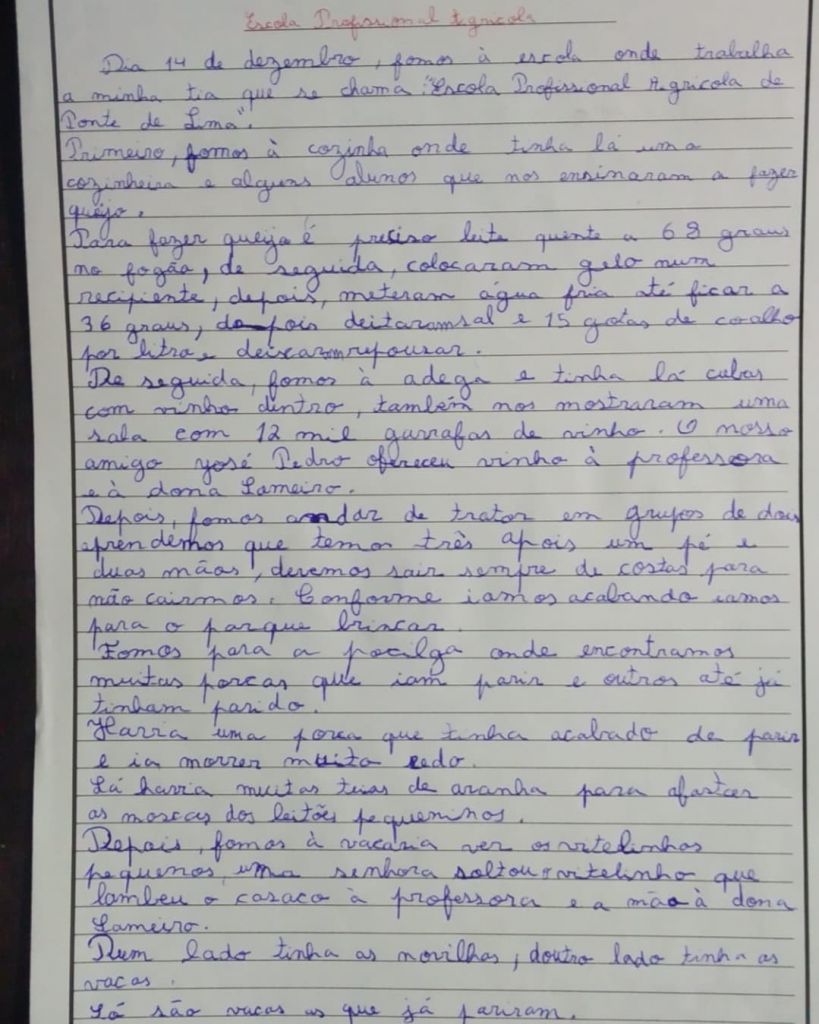 Escola Profissional Agrícola
Dia 14 de dezembro, fomos à escola onde trabalha
a minha tia que se chama "Escola Profissional Agricola de
Ponte de Lima".
Primeiro, fomos à cozinha onde tinha lá uma
cozinheira e alguns alunos que nos ensinaram a fazer
queijo.
Para fazer queijo é preciso leite quente a 68 graus
no fogão, de seguida, colocaram gelo num
recipiente, depois, meteram água fria até ficar a
36 graus, depois deitaram sal e 15 gotas de coalho
por litro e deixaram repousar.
De seguida, fomos à adega e tinha lá cubas
com vinho dentro, também nos mostraram uma
sala com 12 mil garrafas de vinho. O nosso
amigo José Pedro ofereceu vinho à professora
e à dona Lameiro.
Depois, fomos andar de trator em grupos de dois
aprendemos que temos três apois um pé e
duas mãos, devemos sair sempre de costas para
não cairmos. Conforme iamos acabando iamos
para o parque brincar.
Fomos para a pocilga onde encontramos
muitas porcas que iam parir e outros até já
tinham parido.
Havia uma porca que tinha acabado de parir
e ia morrer muito cedo.
Lá havia muitas teias de aranha para afastar
as moscas dos leitões pequeninos.
Depois, fomos à vacaria ver os vitelinhos
pequenos, uma senhora soltou o vitelinho que
lambeu o casaco à professora e a mão à dona
Lameiro.
Num lado tinha as novilhas, doutro lado tinha as
vacas.
Lá são vacas as que já pariram.